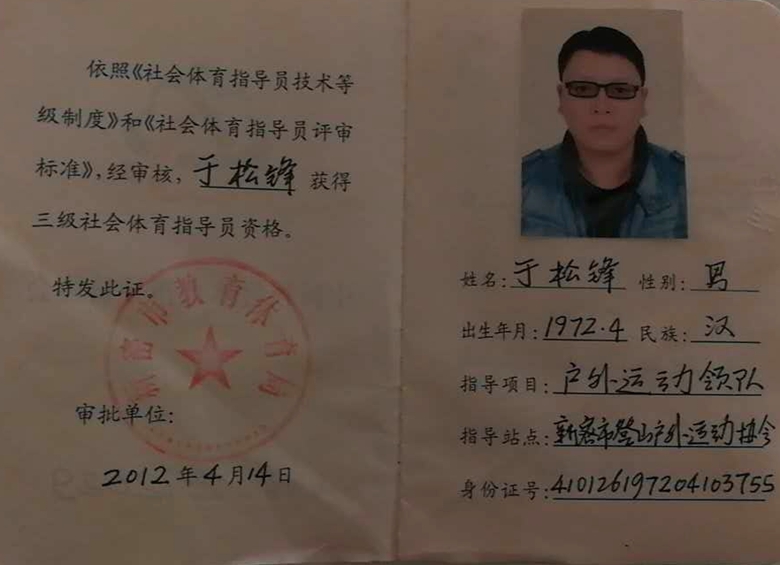 依照《社会体育指导员技术等
级制度》和《社会体育指导员评审
标准》,经审核,于松锋 获得
三级社会体育指导员资格。
特发此证。
新密市教育体育局
审批单位:
2012年4月14日
姓名:于松锋 性别:男
出生年月:1972.4 民族:汉
指导项目:户外运动领队
指导站点:新密市登山户外运动协会
身份证号:410126197204103755